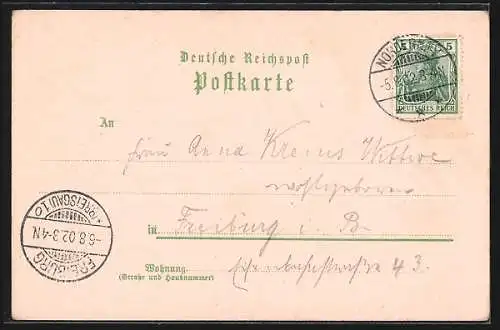 Deutsche Reichspost
Postkarte
NORDERNEY
-5.8.02.
5
DEUTSCHES REICH
An
Frau Anna Krems Wittwe
wohlgeboren
in Freiburg i. B
FREIBURG
(BREISGAU) 1.o
-6.8.02.3-4N
Wohnung
(Straße und Hausnummer)
43.